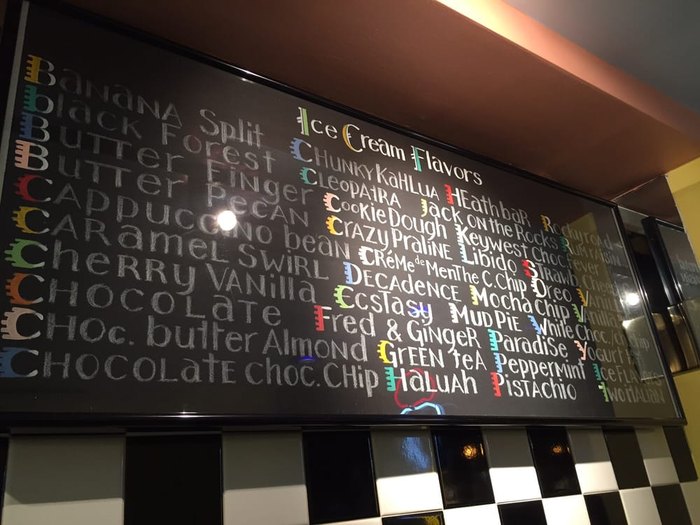 Ice Cream Flavors
Banana Split
Black Forest
Butter Finger
Butter Pecan
Cappuccino bean
Caramel Swirl
Cherry Vanilla
Chocolate
Choc. butter Almond
Chocolate choc. Chip
Chunky Kahlua
Cleopatra
Cookie Dough
Crazy Praline
Crème de Menthe C. Chip
Decadence
Ecstasy
Fred & Ginger
Green tea
Haluah
Heath bar
Jack on the Rocks
Keywest Choc
Libido
Mocha Chip
Mud Pie
Paradise
Peppermint
Pistachio
Rocky road
Rum raisin
Oreo
White Choc.
Yogurt
Ice